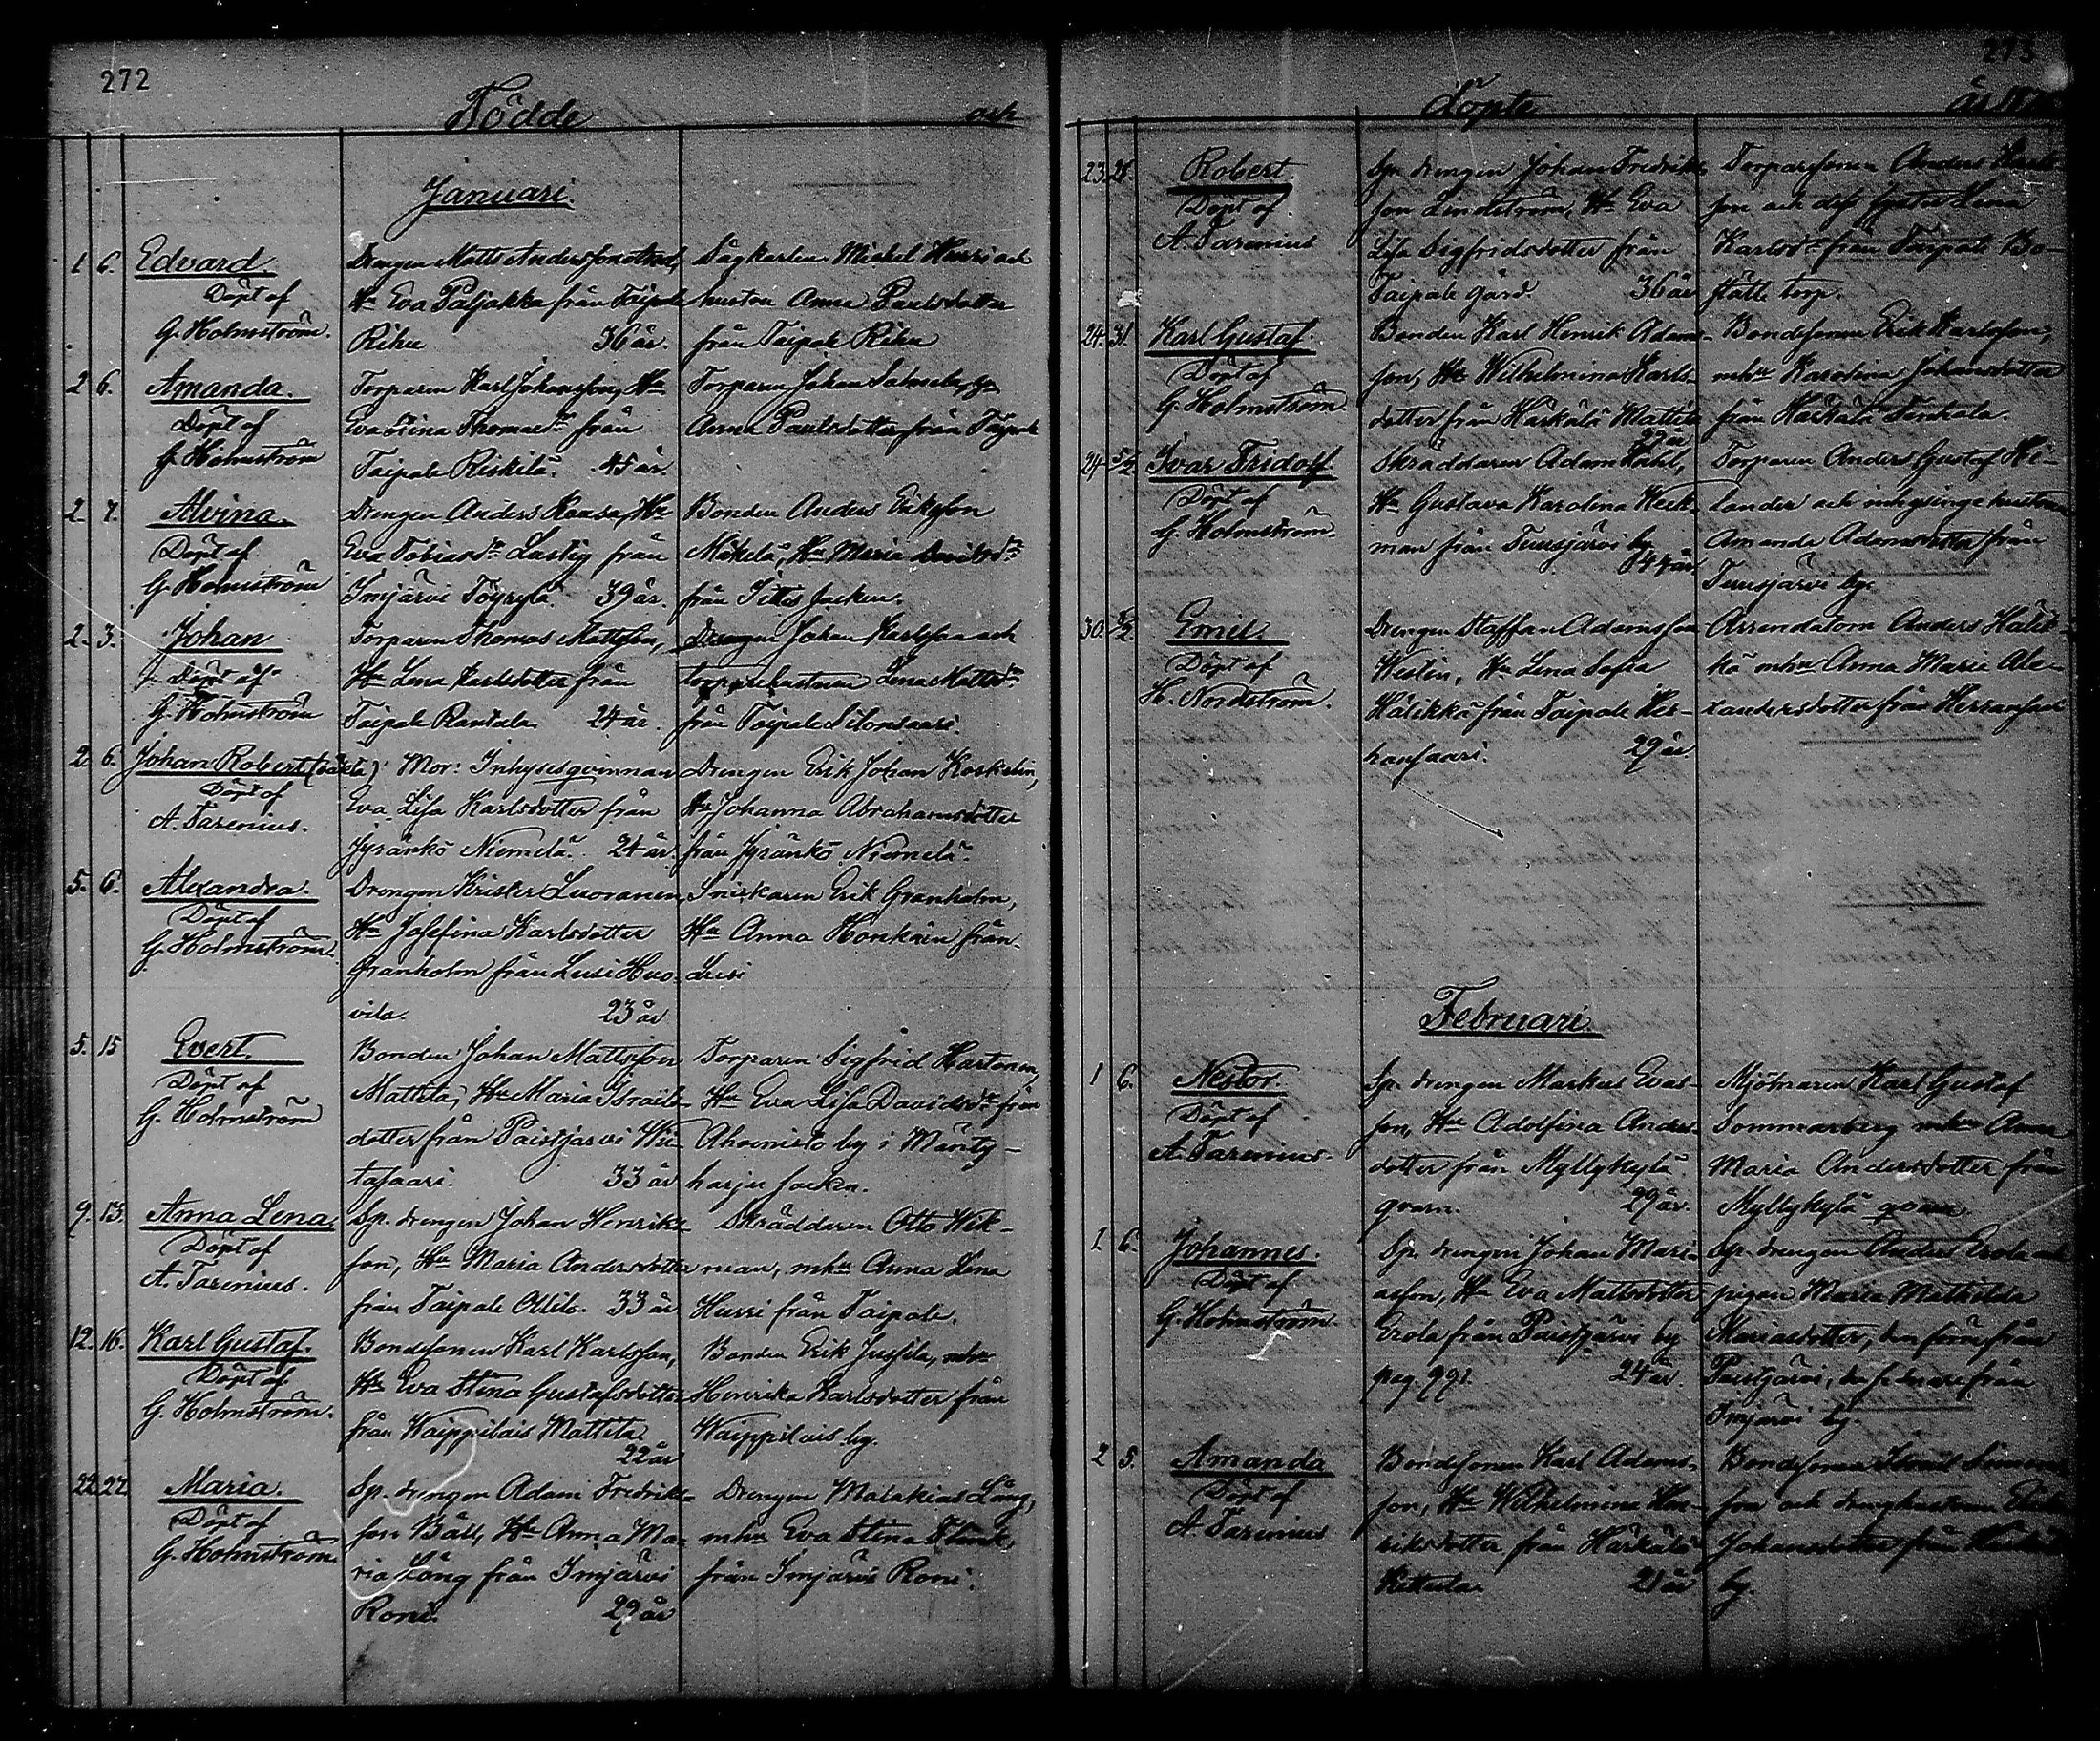 272
Födde och
Januari.
1 6. Edvard
Döpt af
G. Holmström.
Drengen Matts Andersson
Hu Eva Paljakka från Taipale
Rihu 36 år.
Sågkarlen Mickel Hurri och
hustru Anna Paulsdotter
från Taipale Rihu
2 6. Amanda.
Döpt af
G. Holmström
Torparen Karl Johansson, Hu
Eva Stina Thomasdr från
Taipale Riskilä. 45 år.
Torparen Johan
Anna Paulsdotter från Taipale
2. 7. Alvina.
Döpt af
G. Holmström
Drengen Anders Hu
Eva Tobiasdr Lastig från
Imjärvi Töyrylä. 39 år.
Bonden Anders Eriksson
Mäkelä, Hu Maria Davidsdr
från Sitis socken.
2. 3. Johan
Döpt af
G. Holmström
Torparen Thomas Mattsson,
Hu Lena Karlsdotter från
Taipale Rantala 24 år.
Drengen Johan Karlsson och
torparehustrun Lena Mattsdr
från Taipale Silonsaari.
2. 6. Johan Robert (oäkta)
Döpt af
A. Tarenius.
Mor: Inhysesqvinnan
Eva Lisa Karlsdotter från
Jyränkö Niemelä. 24 år.
Drengen Erik Johan Koskelin,
Hu Johanna Abrahamsdotter
från Jyränkö Niemelä.
5. 6. Alexandra.
Döpt af
G. Holmström.
Drengen Krister Luoranen,
Hu Josefina Karlsdotter
Granholm från Lusi Huo-
vila. 23 år
Snickaren Erik Granholm,
Hu Anna Honkain från
Lusi
5. 15 Evert.
Döpt af
G. Holmström
Bonden Johan Mattsson
Mattila, Hu Maria Israels-
dotter från Paistjärvi Wii-
tasaari. 33 år
Torparen Sigfrid Hartonen,
Hu Eva Lisa Davidsdr från
Ahoenisto by i Mänty-
harju socken.
9. 13. Anna Lena.
Döpt af
A. Tarenius.
Sp. drengen Johan Henriks-
son, Hu Maria Andersdotter
från Taipale Ollila. 33 år
Skräddaren Otto Wik-
man, mhu Anna Lena
Hurri från Taipale.
12. 16. Karl Gustaf.
Döpt af
G. Holmström.
Bondesonen Karl Karlsson,
Hu Eva Stina Gustafsdotter
från Waippilais Mattila
22 år
Bonden Erik Jussila, mhu
Henrika Karlsdotter från
Waippilais by.
22 27 Maria.
Döpt af
G. Holmström.
Sp. drengen Adam Fredriks-
son Båll, Hu Anna Ma-
ria Lång från Imjärvi
Roni. 29 år
Drengen Malakias Lång,
mhu Eva Stina
från Imjärvi Roni.
273
Döpte
23. 28. Robert.
Döpt af
A. Tarenius
Sp. drengen Johan Fredriks-
son Lindström, Hu Eva
Lisa Sigfridsdotter från
Taipale gård. 36 år
Torparesonen Anders Karls-
son och dess syster Lena
Karlsdr från Taipale Bo-
ställe torp.
24. 31. Karl Gustaf.
Döpt af
G. Holmström
Bonden Karl Henrik Adams-
son, Hu Wilhelmina Karls-
dotter från Härkälä Mattila
Bondesonen Erik Karlsson,
mhu Karolina Johansdotter
från Härkälä
24 5/2 Ivar Fridolf
Döpt af
G. Holmström.
Skräddaren Adam
Hu Gustava Karolina Heck-
man från Tuusjärvi by
44 år
Torparen Anders Gustaf He-
lander och inhysinge hustrun
Amanda Adamsdotter från
Tuusjärvi by.
30. Emil.
Döpt af
H. Nordström.
Drengen Staffan Adamsson
Westin, Hu Lena Sofia
Hälikkä från Taipale Her-
ransaari. 29 år
Arrendatorn Anders Hälik-
kä mhu Anna Maria Ale-
xandersdotter från Herransaari
Februari.
1 6. Nestor.
Döpt af
A. Tarenius.
Sp. drengen Markus Evas-
son, Hu Adolfina Anders-
dotter från Myllykylä
qvarn. 29 år.
Mjölnaren Karl Gustaf
Sommarberg mhu Anna
Maria Andersdotter från
Myllykylä qvarn.
1 6. Johannes.
Döpt af
G. Holmström.
Sp. drengen Johan Mari-
asson, Hu Eva Mattsdotter
Erola från Paistjärvi by
pag. 991. 24 år.
Sp. drengen Anders Erola och
pigan Maria Mathilda
Mariasdotter, den förre från
Paistjärvi, den sednare från
Imjärvi by.
2 5. Amanda
Döpt af
A. Tarenius
Bondesonen Karl Adams-
son, Hu Wilhelmina Hen-
riksdotter från Härkälä
21 år
Bondesonen Israel Simons-
son och drenghustrun
Johansdotter från Härkälä
by.